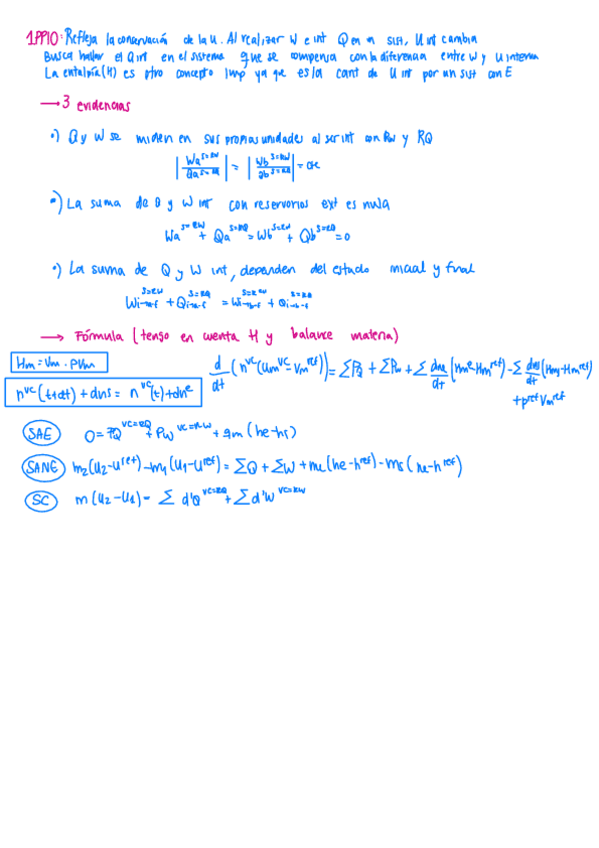 1.PPIO: Refleja la conservación de la U. Al realizar W e int Q en un sist, U int cambia
Busca hallar el Q int en el sistema que se compensa con la diferencia entre W y U interna
La entalpía (H) es otro concepto imp ya que es la cant de U int por un sist con E
→ 3 evidencias
•) Q y W se miden en sus propias unidades al ser int con RW y RQ
|Wa^S=RW / Qa^S=RQ| = |Wb^S=RW / Qb^S=RQ| = cte
•) La suma de Q y W int con reservorios ext es nula
Wa^S=RW + Qa^S=RQ = Wb^S=RW + Qb^S=RQ = 0
•) La suma de Q y W int, dependen del estado inicial y final
Wi-a-f^S=RW + Qi-a-f^S=RQ = Wi-b-f^S=RW + Qi-b-f^S=RQ
→ Fórmula (tengo en cuenta H y balance materia)
Hm = Um . PVm
d/dt (n^VC (Um^VC - Um^ref)) = ΣPQ + ΣPw + Σ dne/dt (Hm^e - Hm^ref) - Σ dns/dt (Hms - Hm^ref)
+ P^ref Vm^ref
n^VC (t+dt) + dns = n^VC (t) + dn^e
SAE 0 = PQ^VC=RQ + PW^VC=RW + qm (he-hs)
SANE m2 (U2-U^ref) - m1 (U1-U^ref) = ΣQ + ΣW + me (he-h^ref) - ms (he-h^ref)
SC m (U2-U1) = Σ d'Q^VC=RQ + Σ d'W^VC=RW